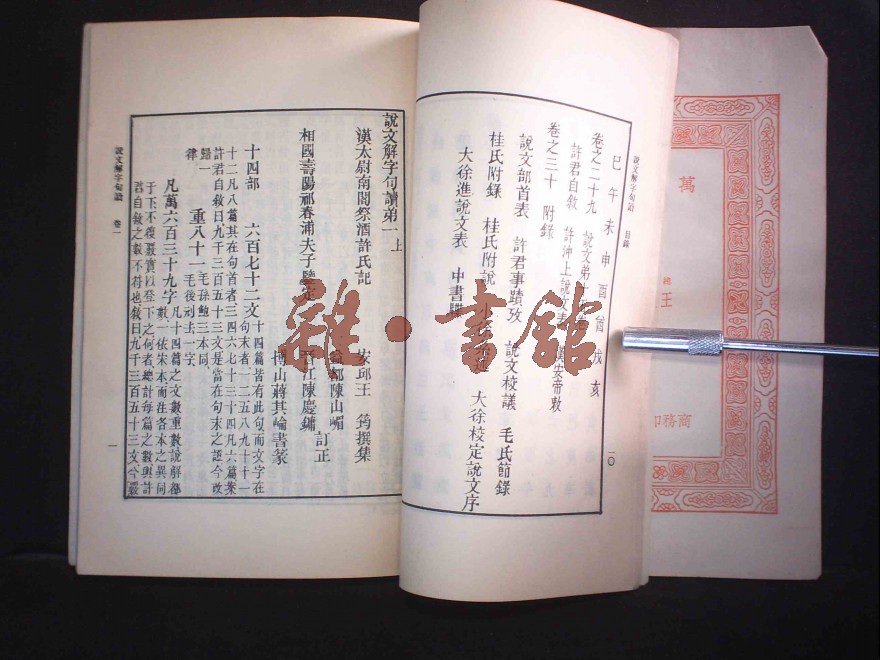 萬
王
商務印
說文解字句讀 目錄
巳 午 未 申 酉 酋 戌 亥
卷之二十九 說文弟
許君自敘 許沖上說文表 漢安帝敕
卷之三十 附錄
說文部首表 許君事蹟攷 說文校議 毛氏節錄
桂氏附錄 桂氏附說 小徐 大徐校定說文序
大徐進說文表 中書牒
一〇
說文解字句讀弟一上
漢太尉南閣祭酒許氏記
安邱王 筠撰集
相國壽陽祁春浦夫子鑒定
益都陳山嵋
晉江陳慶鏞 訂正
博山蔣其崘書篆
十四部 六百七十二文 十四篇皆有此句而文字在
句末者一二五八九十十一
十二凡八篇其在句首者三四六七十三十四凡六篇案
許君自敘曰九千三百五十三文是當在句末之證今改
歸一
律 重八十一 毛孫鮑三本同
毛後刓去一字
凡萬六百三十九字 凡十四篇之文數重數說解都
數一依宋本而注各本之異同
于下不復覈實以登下之何者總計每篇之數與許
君自敘之數不符也敘曰九千三百五十三文今覈
說文解字句讀 卷一
一
雜·書館